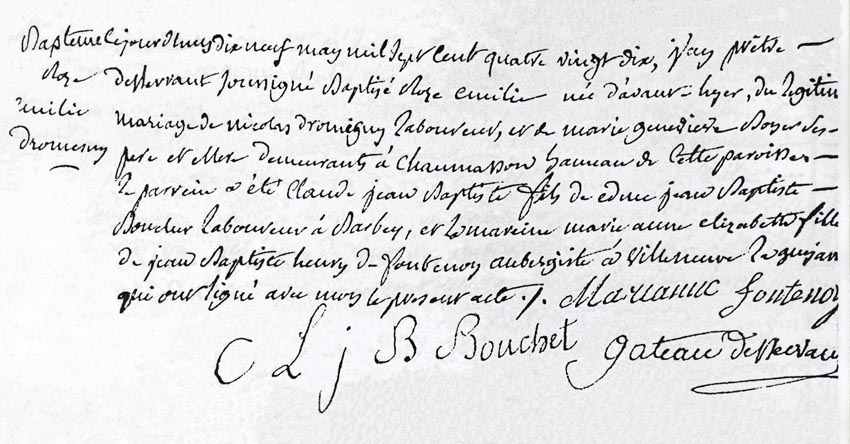 Bapteme Lejourdhuy dix neuf may mil sept cent quatre vingt dix, j'ay prêtre —
Roze desservant soussigné Baptisé Roze emilie née d'avant-hyer, du legitim
emilie mariage de nicolas dromigny Laboureur, et de marie genevieve Boyer ses
dromigny pere et Mere demeurants à Chaumasson hameau de Cette paroisse —
le parrein a été Claude jean Baptiste fils de edme jean Baptiste —
Bouchez Laboureur à Barbey, et la mareine marie anne elizabette fille
de jean Baptiste henry de fontenoy aubergiste à villeneuve la guyar
qui ont signé avec nous le present acte ./. Marianne fontenoy
C L j B Bouchet gateau desservan